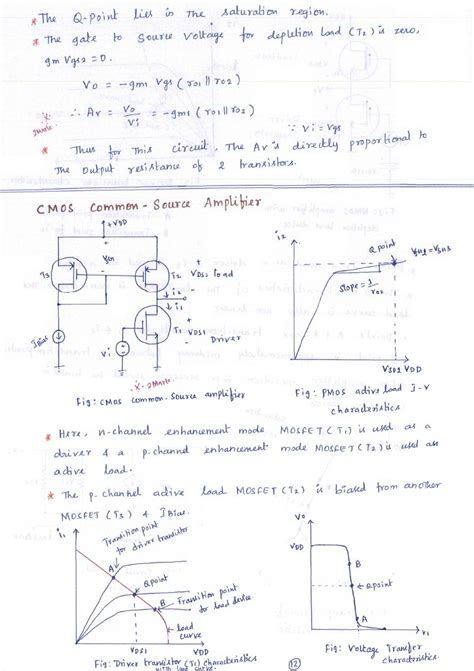 * The Q-Point lies in the saturation region.
* The gate to Source Voltage for depletion load (T2) is zero,
gm Vgs2 = 0.
Vo = -gm1 Vgs (ro1 || ro2)
∴ Av = Vo/Vi = -gm1 (ro1 || ro2)
∵ Vi = Vgs
* Thus for this circuit, The Av is directly proportional to
The output resistance of 2 transistors.
CMOS Common-Source Amplifier
+VDD
T3
T2
VDS2 load
i2
i1
T1
VDS1
Driver
IBias
Vi
Fig: CMOS common-source amplifier
i2
Q point
slope = 1/ro2
VSD2
VDD
Fig: PMOS active load I-V
characteristics
* Here, n-channel enhancement mode MOSFET (T1) is used as a
driver & a p-channel enhancement mode MOSFET (T2) is used as
active load.
* The p-channel active load MOSFET (T2) is biased from another
MOSFET (T3) & IBias.
i1
Transition point
for driver transistor
A
Q point
B
Transition point
for load device
load
curve
VDS1
VDD
Fig: Driver transistor (T1) characteristics
with load curve
Vo
VDD
B
Q point
A
VI
Fig: Voltage Transfer
characteristics
12